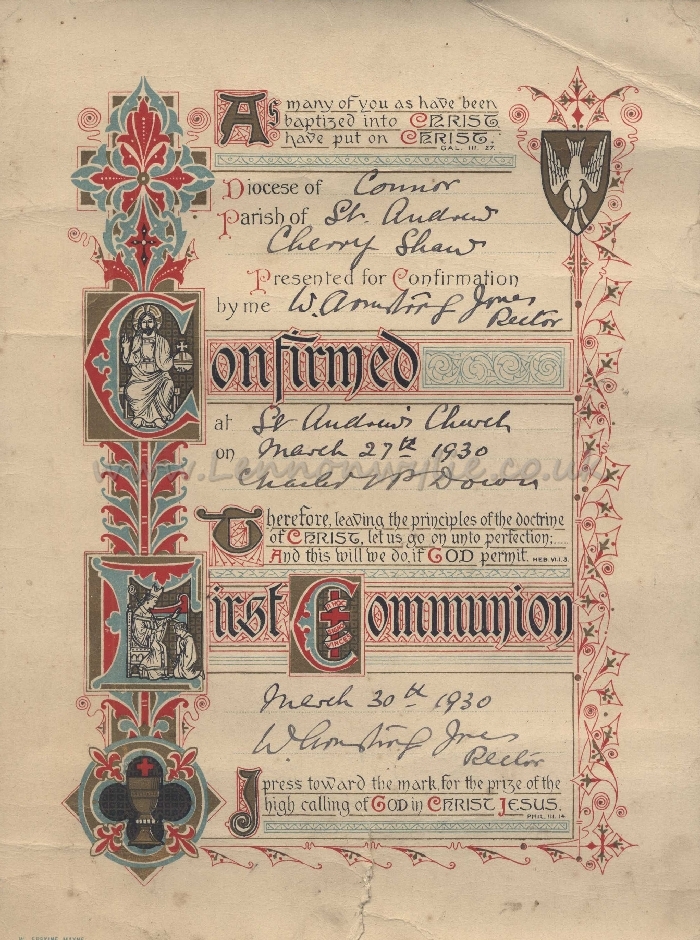 As many of you as have been
baptized into CHRIST
have put on CHRIST.
GAL. III. 27.
Diocese of Connor
Parish of St. Andrew
Cherry Shaw
Presented for Confirmation
by me W. Armstrong Jones
Rector
Confirmed
at St Andrew's Church
on March 27th 1930
www.Lennonwylie.co.uk
Charles T P Down
Therefore, leaving the principles of the doctrine
of CHRIST, let us go on unto perfection;
And this will we do, if GOD permit. HEB. VI. 1, 3.
First Communion
March 30th 1930
W Armstrong Jones
Rector
I press toward the mark, for the prize of the
high calling of GOD in CHRIST JESUS.
PHIL. III. 14
W. ERSKINE MAYNE